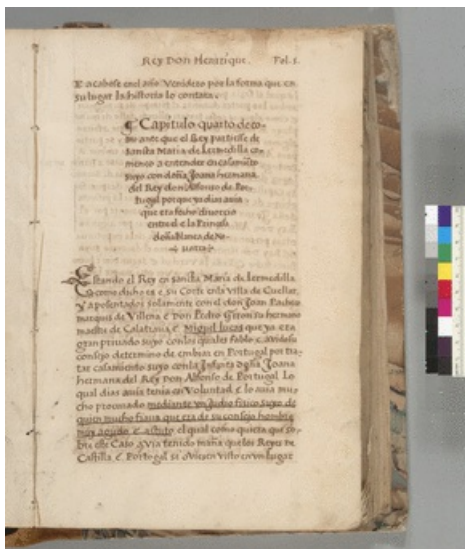 Rey Don Henrrique. Fol.5.
E acabose en el año Venidero por la forma que en
su lugar la historia lo contara.
Capitulo quarto de co-
mo ante que el Rey partiesse de
sancta Maria de lermedilla co-
menco a entender en casamiẽto
suyo con doña Joana hermana
del Rey don Alfonso de Por-
tugal por que ya dias auia
que era fecho diuorcio
entre el e la Princesa
doña Blanca de Na-
uarra
Estando el Rey en sancta Maria de lermedilla
como dicho es e su Corte en la Villa de Cuellar,
y aposentados solamente con el don Juan Pacheco
marques de Villena e Don Pedro Giron su hermano
maestre de Calatraua e Miguel lucas que ya era
gran priuado suyo con los quales fablo, e auido su
consejo determino de embiar en Portugal por tra-
tar casamiento suyo con la Infanta doña Joana
hermana del Rey Don Alfonso de Portugal lo
qual dias auia tenia en Voluntad e lo auia mu-
cho procurado mediante vn Judio fisico suyo de
quien mucho fiaua que era de su consejo hombre
muy agudo, e astuto el qual como quiera que so-
bre este Caso auia tenido maña que los Reyes de
Castilla e Portugal se ouiessen visto en vn lugar